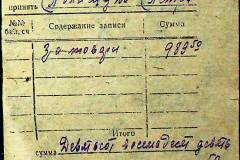 принять
№№ бал. сч Содержание записи Сумма
За товары 989 50
Итого
сумма Девятьсот восемьдесят девять
50